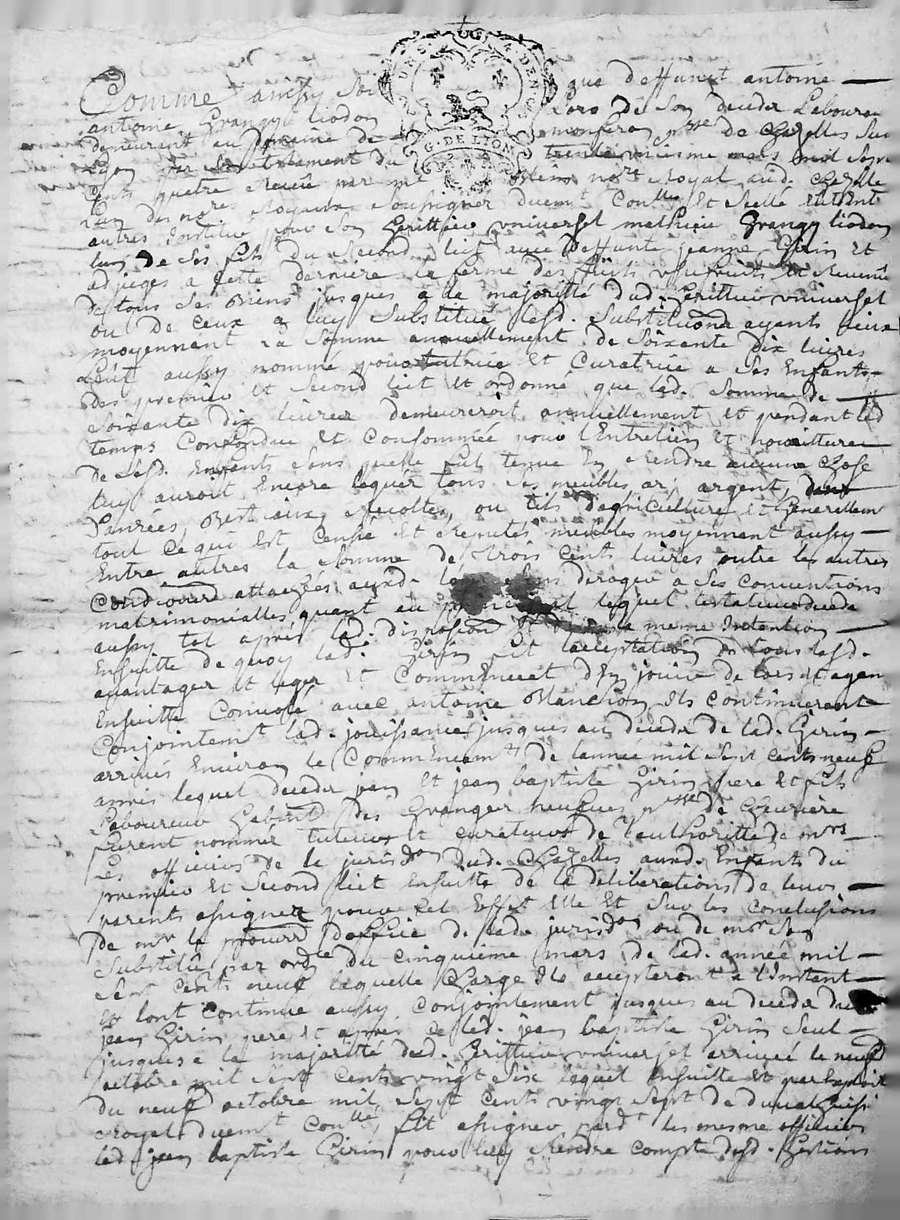 DEUX S. 4 DEN.
G. DE LYON
Comme ainsy soit que deffunct antoine
antoine Grangy liodon lors de son deceds Laboureur
demeurant au Domaine de monferon psse de Chazelles sur
Lyon par son testament du trente uniesme mars mil sept
cents quatre receu par me nore Royal aud. Chazelle
l'un des nores Royaux soussigner duemt Contlle Et Scellé Entre
autres Institue pour son herittier universel mathieu Grangy liodon
lun de ses fils du second lict avec deffunte jeanne Girin Et
adjuges a cette derniere la ferme des fruits usufruits Et Revenu
de tous ses Biens jusques a la majoritté dud. herittier universel
ou de ceux a luy substitué lesd. substitutions ayants lieux
moyennant la somme annuellement de soixante dix livres
L'eut aussy nommé pour tutrice Et Curatrice a ses Enfants
des premier Et second lict Et ordonné que lad. somme de
soixante dix livres demeureroit annuellement Et pendant led
temps Confondue Et Consommée pour l'Entretien Et nourriture
de sesd. Enfants sans quelle fut tenue En Rendre aucune chose
luy auroit Encore leguer tous ses meubles or, argent,
Danrées, Bestiaux, Recoltes, outils d'agriculture Et Generallemt
tout ce qui Est Censé Et reputés meubles moyennant aussy
Entre autres la somme de trois cent livres outre les autres
Conditions attachées auxd. deroger a ses Conventions
matrimonialles quant au lequel testateur deceda
aussy tot apres lad. disposition la meme Intention
Ensuitte de quoy lad. Girin fit l'acceptation de tous lesd.
avantager Et leger Et Commencet d'En jouir de lors Et ayan
Ensuitte Convolé avec antoine Blanchon Ils Continuerent
Conjointemt lad. jouissance jusques au deceds de lad. Girin
arrivés Environ le Commencemt de l'année mil sept cents neuf
apres lequel deceds jean Et jean baptiste Girin pere Et fils
Laboureur habitt des Granger neufves psse de
furent nommé tuteurs Et curateurs de l'authoritté de mrs
Les officiers de la jurisdon dud. Chazelles auxd. Enfants du
premier Et second lict Ensuitte de la deliberations de leurs
parents assignez pour cet Effet Et sur les conclusions
de mr le procurr d'office de lad. jurisdon ou de mr son
substitut par ordce du cinquieme mars de lad. année mil
sept cents neuf laquelle Charge Ils accepteront a l'Instant
Et l'ont continue aussy conjointement jusques au deceds dud.
jean Girin pere Et apres ce led. jean baptiste Girin seul
jusques a la majoritté dud. herittier universel arrivée le neuf
octobre mil sept cents vingt six lequel Ensuitte Et par Exploit
du neuf octobre mil sept cents vingt sept de
Royal duemt Contlle, fit assigner pardt les mesme officiers
led. jean baptiste Girin pour luy Rendre compte desd. Gestions